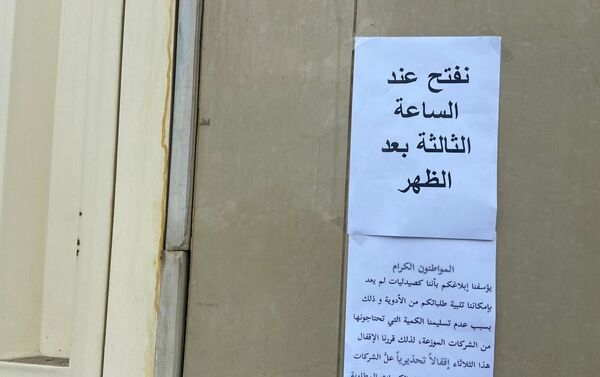 نفتح عند
الساعة
الثالثة بعد
الظهر
المواطنون الكرام
يؤسفنا إبلاغكم بأننا كصيدليات لم يعد
بإمكاننا تلبية طلباتكم من الأدوية و ذلك
بسبب عدم تسليمنا الكمية التي تحتاجونها
من الشركات الموزعة، لذلك قررنا الإقفال
هذا الثلاثاء إقفالاً تحذيرياً علّ الشركات